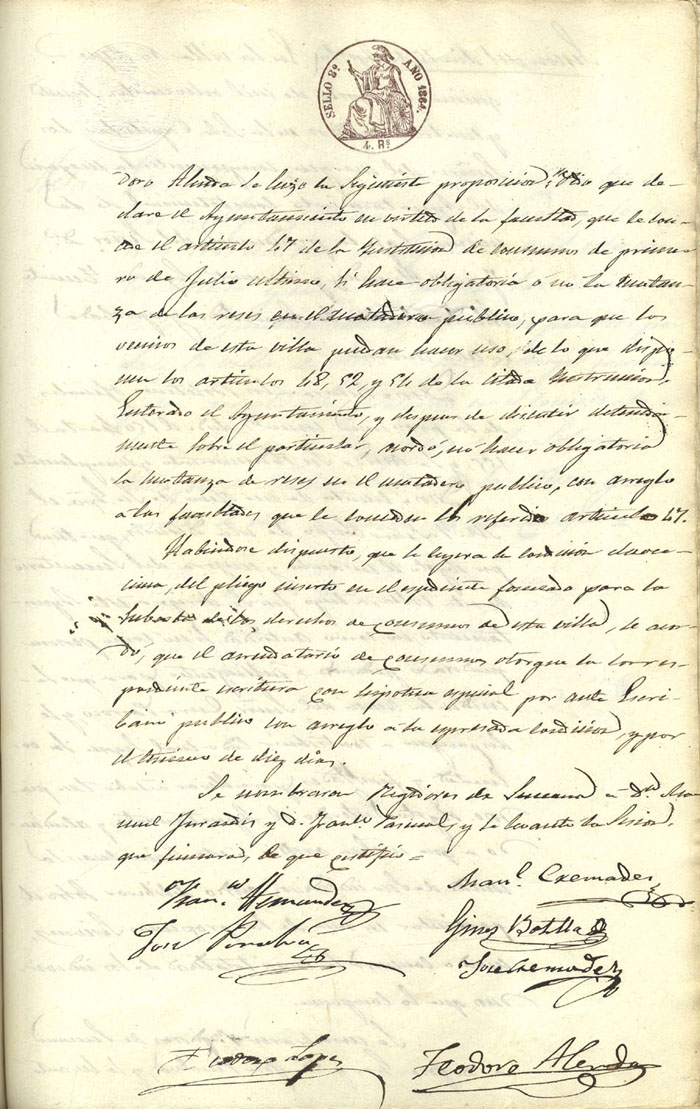 SELLO 8º AÑO 1864.
4. Rs
doro Alenda se hizo la siguiente proposicion: "Pido que de-
clare el Ayuntamiento en virtud de la facultad, que le con-
cede el artículo 47 de la Instruccion de consumos de prime-
ro de Julio ultimo, si hace obligatoria ó no la matan-
za de las reses en el matadero público, para que los
vecinos de esta villa puedan hacer uso, de lo que dispo-
nen los artículos 48, 52, y 54 de la citada Instruccion,
Enterado el Ayuntamiento, y despues de discutir detenida-
mente sobre el particular, acordó, no hacer obligatoria
la matanza de reses en el matadero publico, con arreglo
a las facultades que le conceden el referido articulo 47.
Habiendose dispuesto, que la de la condicion duode-
cima, del pliego inserto en el espediente formado para la
subasta de los derechos de consumos de esta villa, se acor-
dó, que el arrendatario de consumos otorgue la corres-
pondiente escritura con hipoteca especial por ante Escri-
bano publico con arreglo a la espresada condicion, y por
el termino de diez dias.
Se nombraron Regidores de Semana a Dn Ma-
nuel y D. Franco Pascual, y se levantó la Sesion,
que firmaron, de que certifico =
Franco Hernandez Manl. Cremades
José Gines Botella
José Cremades
Teodoro Lopez Teodoro Alenda